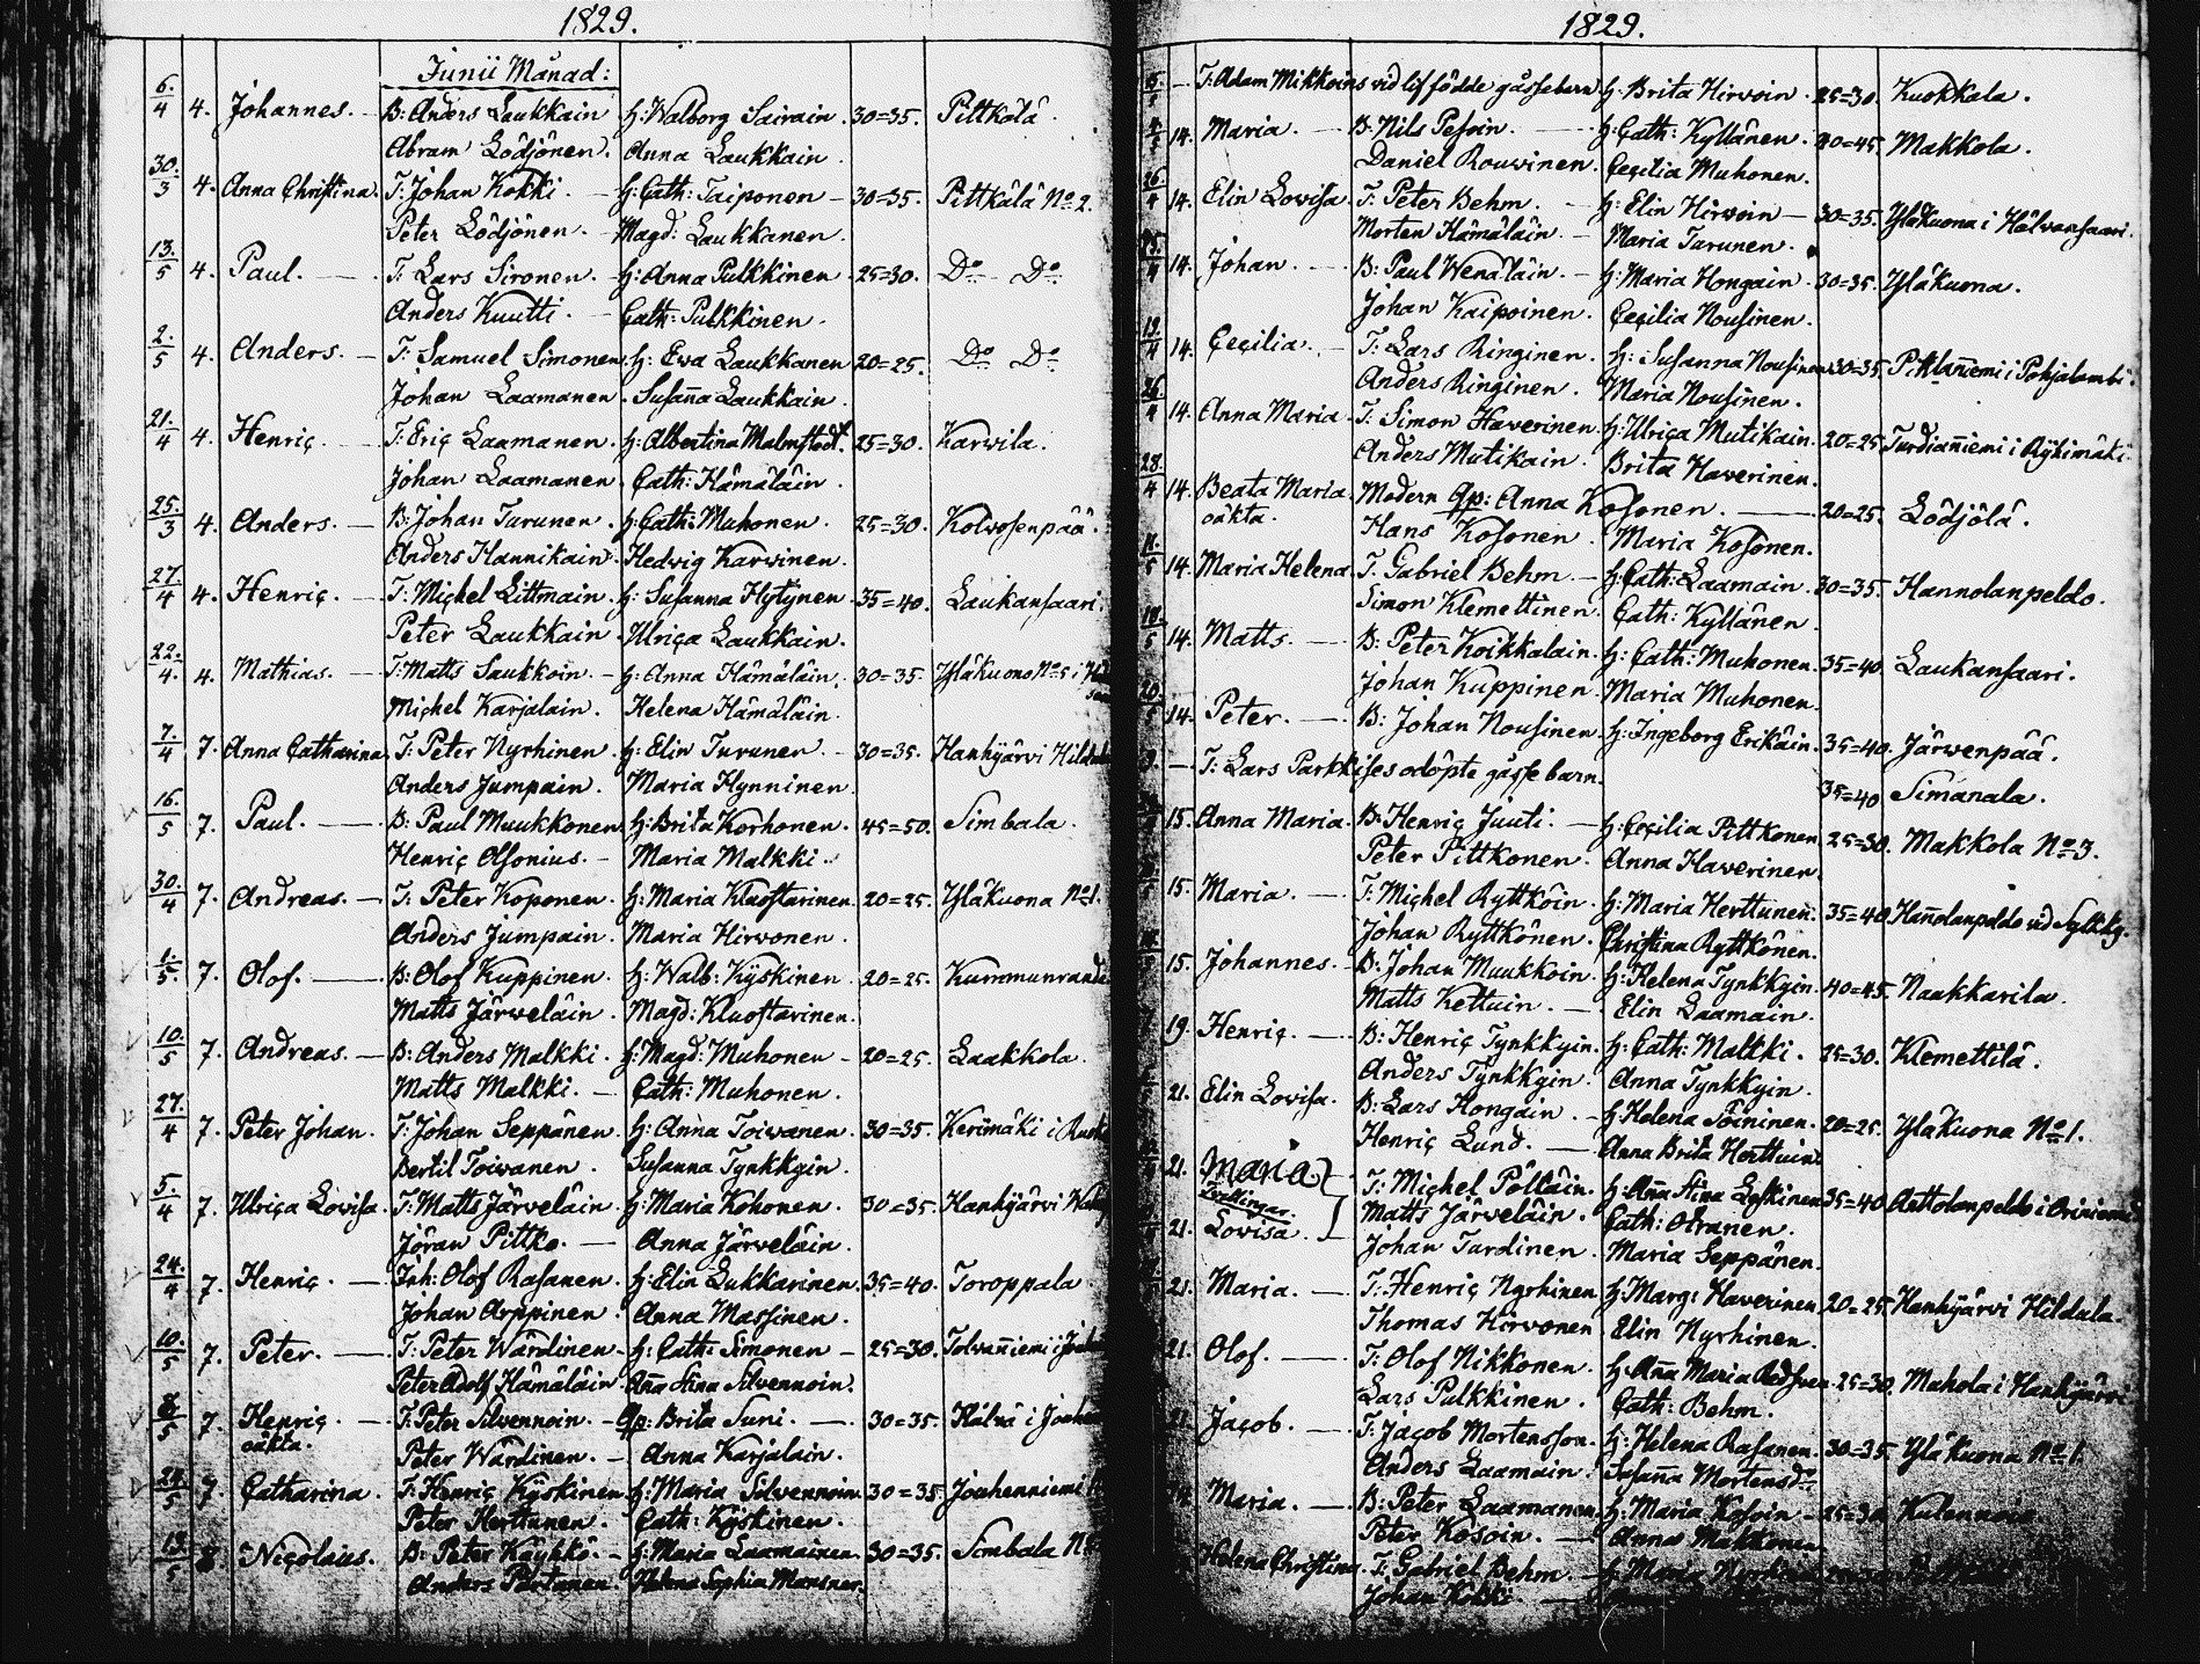 1829.
Junii Månad:
6./4 4. Johannes. B: Anders Laukkain H: Walborg Sairain. 30=35. Pittkälä.
Abram Lödjönen. Anna Laukkain.
30./3 4. Anna Christina. T: Johan Kokki. H: Cath: Taiponen 30=35. Pittkälä No 2.
Peter Lödjönen. Magd: Laukkanen.
13./5 4. Paul. T: Lars Sironen. H: Anna Pulkkinen 25=30. Do Do
Anders Kuutti. Cath: Pulkkinen.
2./5 4. Anders. T: Samuel Simonen. H: Ewa Laukkanen 20=25. Do Do
Johan Laamanen. Susanna Laukkain.
21./4 4. Henric. T: Eric Laamanen. H: Albertina Malmstedt. 25=30. Karwila.
Johan Laamanen. Cath: Hämäläin.
25./3 4. Anders. B: Johan Turunen. H: Cath: Muhonen. 25=30. Kolwosenpää.
Anders Hannikain. Hedwig Karwinen.
27./4 4. Henric. T: Michel Littmain. H: Susanna Hytynen. 35=40. Laukansaari.
Peter Laukkain. Ulrica Laukkain.
22./4. 4. Mathias. T: Matts Saukkoin. H: Anna Hämäläin. 30=35. Yläkuona No 5 i
Michel Karjalain. Helena Hämäläin.
7./4 7. Anna Catharina. T: Peter Nyrhinen. H: Elin Turunen. 30=35. Hankijärvi
Anders Jumpain. Maria Hynninen.
16./5 7. Paul. B: Paul Muukkonen. H: Brita Korhonen. 45=50. Simbala.
Henric Olsonius. Maria Malkki.
30./4 7. Andreas. T: Peter Koponen. H: Maria Kluostarinen. 20=25. Yläkuona No 1.
Anders Jumpain. Maria Hirwonen.
1./5. 7. Olof. B: Olof Kuppinen. H: Walb: Kyskinen. 20=25.
Matts Järweläin. Magd: Kluostarinen.
10./5 7. Andreas. B: Anders Malkki. H: Magd: Muhonen 20=25. Laakkola.
Matts Malkki. Cath: Muhonen.
27./4 7. Peter Johan. T: Johan Seppänen. H: Anna Toiwanen. 30=35. Kerimäki i
Bertil Toiwanen. Susanna Tynkkyin.
5./4 7. Ulrica Lovisa. T: Matts Järveläin. H: Maria Kohonen. 30=35. Hankijärvi
Jöran Pittko. Anna Järveläin.
24./4 7. Henric. Inh: Olof Rasanen. H: Elin Lukkarinen. 35=40. Toroppala
Johan Arppinen. Anna Massinen.
10./5 7. Peter. T: Peter Wärdinen. H: Cath: Simonen 25=30. Tolwanniemi i
Peter Adolf Hämäläin. Anna Stina Silvennoin.
8./5 7. Henric. T: Peter Silvennoin. Qp: Brita Suni. 30=35. Hälvä i
oäkta. Peter Wärdinen. Anna Karjalain.
24./5 7. Catharina. T: Henric Kyskinen. H: Maria Silvennoin. 30=35. Jouhenniemi
Peter Herttunen. Cath: Kyskinen.
19./5 8. Nicolaus. B: Peter Käyhkö. H: Maria Laamainen. 30=35. Simbala
Anders Partanen. Helena Sophia Mansner.
1829.
5./5 T: Adam Mikkoins vid lif födde gossebarn. H: Brita Hirwoin. 25=30. Kuokkala.
14. Maria. B: Nils Pesoin. H: Cath: Kyllänen. 40=45. Makkola.
Daniel Rouwinen. Cecilia Muhonen.
26./4 14. Elin Lovisa. T: Peter Behm. H: Elin Hirwoin 30=35. Yläkuona i Hälvansaari.
Morten Hämäläin. Maria Turunen.
14. Johan. B: Paul Wenäläin. H: Maria Hongain. 30=35. Yläkuona.
Johan Kaipoinen. Cecilia Nousinen.
19./4 14. Cecilia. T: Lars Ringinen. H: Susanna Nousinen 30=35. Pitklanniemi i Pohjalambi.
Anders Ringinen. Maria Nousinen.
26./4 14. Anna Maria. T: Simon Haverinen. H: Ulrica Mutikain. 20=25. Turdianniemi i Ryhimäki.
Anders Mutikain. Brita Haverinen.
28./4 14. Beata Maria. Modern Qp: Anna Kosonen. 20=25. Lödjölä.
oäkta. Hans Kosonen. Maria Kosonen.
11./5 14. Maria Helena. T: Gabriel Behm. H: Cath: Laamain. 30=35. Hannolanpeldo.
Simon Klemettinen. Cath: Kyllänen.
18./5 14. Matts. B: Peter Koikkalain. H: Cath: Muhonen. 35=40. Laukansaari.
Johan Kuppinen. Maria Muhonen.
20./5 14. Peter. B: Johan Nousinen. H: Ingeborg Erikäin. 35=40. Järwenpää.
T: Lars Parkkises odöpte gossebarn. 35=40 Simanala.
15. Anna Maria. B: Henric Juuti. H: Cecilia Pittkonen 25=30. Makkola No 3.
Peter Pittkonen. Anna Haverinen.
15. Maria. T: Michel Ryttköin. H: Maria Herttunen. 35=40. Hannolanpeldo vid
Johan Ryttkönen. Christina Ryttkönen.
15. Johannes. B: Johan Muukkoin. H: Helena Tynkkyin. 40=45. Naakkarila.
Matts Kettuin. Elin Laamain.
19. Henric. B: Henric Tynkkyin. H: Cath: Malkki. 25=30. Klemettilä.
Anders Tynkkyin. Anna Tynkkyin.
21. Elin Lovisa. B: Lars Hongain. H: Helena Töininen. 20=25. Yläkuona No 1.
Henric Lund. Anna Brita Herttuin.
21. Maria T: Michel Pölläin. H: Anna Stina Loskinen 35=40. Anttolanpeldo i
Tvillingar. Matts Järveläin. Cath: Otranen.
21. Lovisa. Johan Turdinen. Maria Seppänen.
21. Maria. T: Henric Nyrhinen H: Marg: Haverinen 20=25. Hankijärvi Hildula.
Thomas Hirvonen Elin Nyrhinen.
21. Olof. T: Olof Nikkonen. H: Anna Maria 25=30. Mahola i Hankijärvi
Lars Pulkkinen. Cath: Behm.
21. Jacob. T: Jacob Mortensson. H: Helena Rasanen. 30=35. Yläkuona No 1.
Anders Laamain. Susanna Mortensdr
Maria. B: Peter Laamanen H: Maria Kosoin 25=30
Peter Kosoin. Anna Makkonen
Helena Christina. T: Gabriel Behm. H: Maria
Johan Kokki.